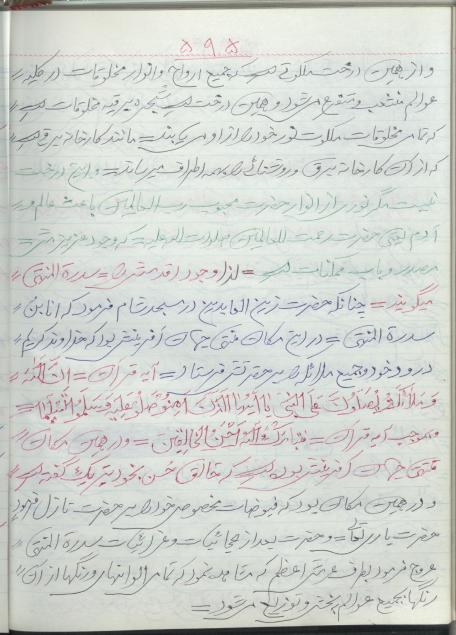 ۵۹۵
و از همین درخت ملکوتی است که جمیع ارواح و انوار مخلوقات در کلیه
عوالم منشعب و متفرع میشود و همین درخت است شجره برقیه مخلوقات است
که تمام مخلوقات ملکوت نور خود را از او میگیرند = مانند کارخانه برق است
که از آن کارخانه برق و روشنائی را بهمه اطراف میرسانند = و این درخت
نیست مگر نوری از انوار حضرت محبوب رب العالمین باعث عالم و
آدم یعنی حضرت رحمت للعالمین صلوات الله علیه = که وجود عزیزش
مصدر و باب ممکنات است = لذا وجود اقدسش را = سدرة المنتهی
میگویند = چنانکه حضرت زین العابدین در مسجد شام فرمود که انا بن
سدرة المنتهی = در این مکان منتهی جهان آفرینش بود که خداوند کریم
درود خود و جمیع ملائکه را بر حضرتش فرستاد = آیه قرآن = ان الله
و ملائکته یصلون علی النبی یا ایها الذین آمنو صلو علیه و سلمو تسلیما =
و بموجب آیه قرآن = فتبارک الله احسن الخالقین = و در همین مکان
منتهی جهان آفرینش بوده است که خالق حسن بخود تبریک گفته است
و در همین مکان بود که فیوضات مخصوص خود را بر حضرت نازل فرمود
حضرت باری تعالی = و حضرت بعد از عجائبات و غرائبات سدرة المنتهی
عروج فرمود بطرف عرش اعظم که مشاهده نمود که تمام الوانها و رنگها از آن
رنگها بجمیع عوالم پخش و توزیع میشود =